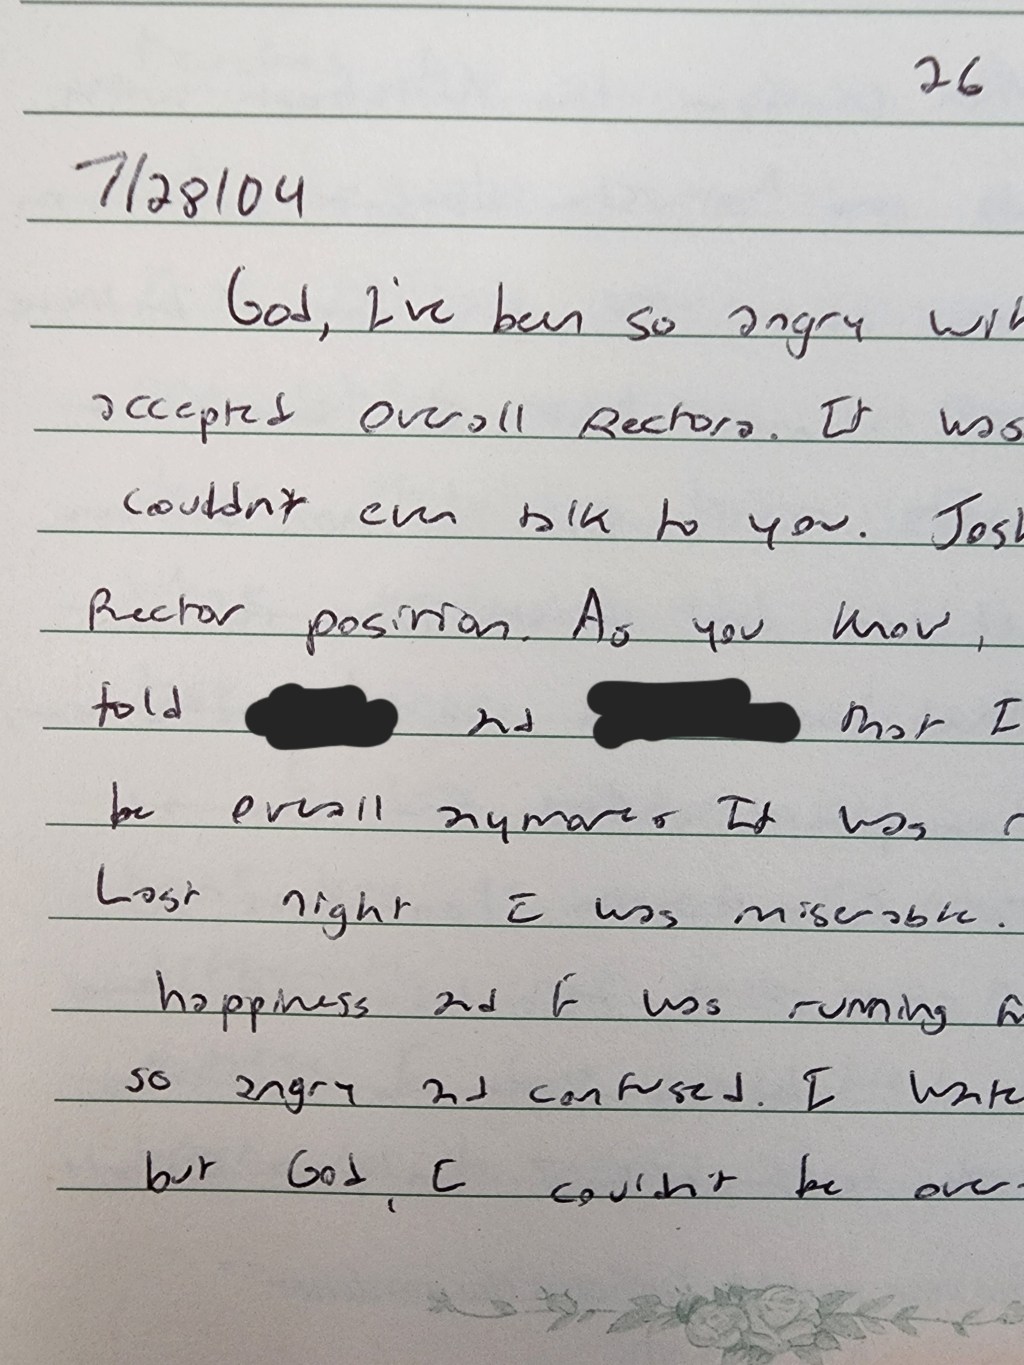 26
7/28/04
God, I've been so angry with
accepted Overall Rectora. It was
couldn't even talk to you. Josh
Rector position. As you know,
told and that I
be overall anymore. It was
Last night I was miserable.
happiness and I was running
so angry and confused. I
but God, I couldn't be over